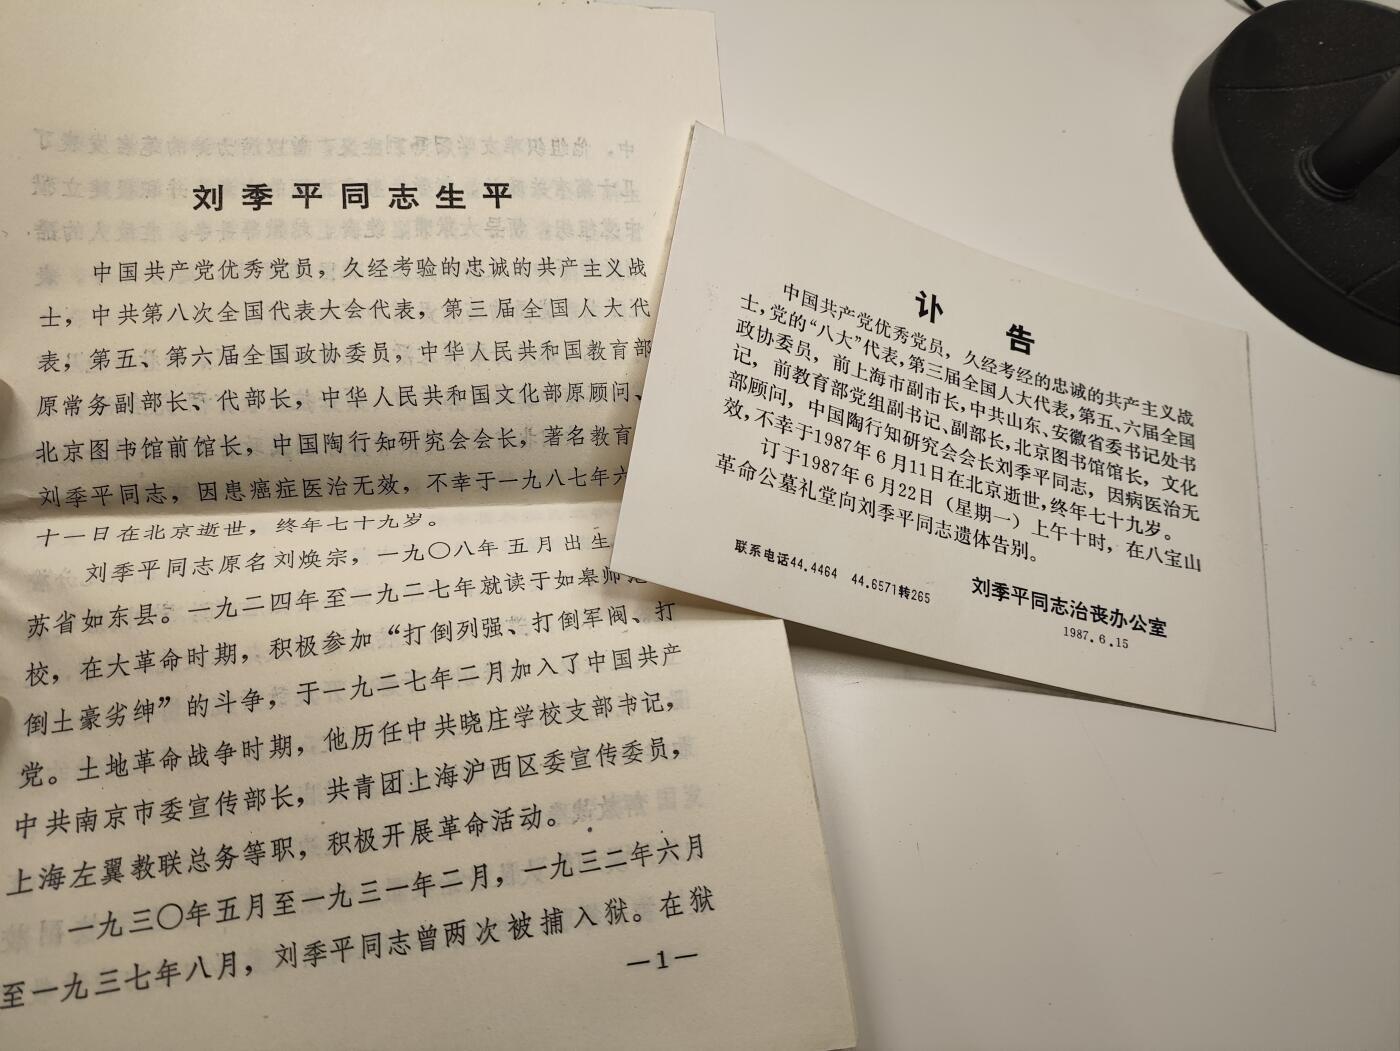 刘季平同志生平
中国共产党优秀党员，久经考验的忠诚的共产主义战
士，中共第八次全国代表大会代表，第三届全国人大代
表，第五、第六届全国政协委员，中华人民共和国教育部
原常务副部长、代部长，中华人民共和国文化部原顾问、
北京图书馆前馆长，中国陶行知研究会会长，著名教育
刘季平同志，因患癌症医治无效，不幸于一九八七年六
十一日在北京逝世，终年七十九岁。
刘季平同志原名刘焕宗，一九〇八年五月出生
苏省如东县。一九二四年至一九二七年就读于如皋师范
校，在大革命时期，积极参加“打倒列强、打倒军阀、打
倒土豪劣绅”的斗争，于一九二七年二月加入了中国共产
党。土地革命战争时期，他历任中共晓庄学校支部书记，
中共南京市委宣传部长，共青团上海沪西区委宣传委员，
上海左翼教联总务等职，积极开展革命活动。
一九三〇年五月至一九三一年二月，一九三二年六月
至一九三七年八月，刘季平同志曾两次被捕入狱。在狱
—1—
讣告
中国共产党优秀党员，久经考经的忠诚的共产主义战
士，党的“八大”代表，第三届全国人大代表，第五、六届全国
政协委员，前上海市副市长，中共山东、安徽省委书记处书
记，前教育部党组副书记、副部长，北京图书馆馆长，文化
部顾问，中国陶行知研究会会长刘季平同志，因病医治无
效，不幸于1987年6月11日在北京逝世，终年七十九岁。
订于1987年6月22日（星期一）上午十时，在八宝山
革命公墓礼堂向刘季平同志遗体告别。
联系电话44.4464 44.6571转265
刘季平同志治丧办公室
1987.6.15